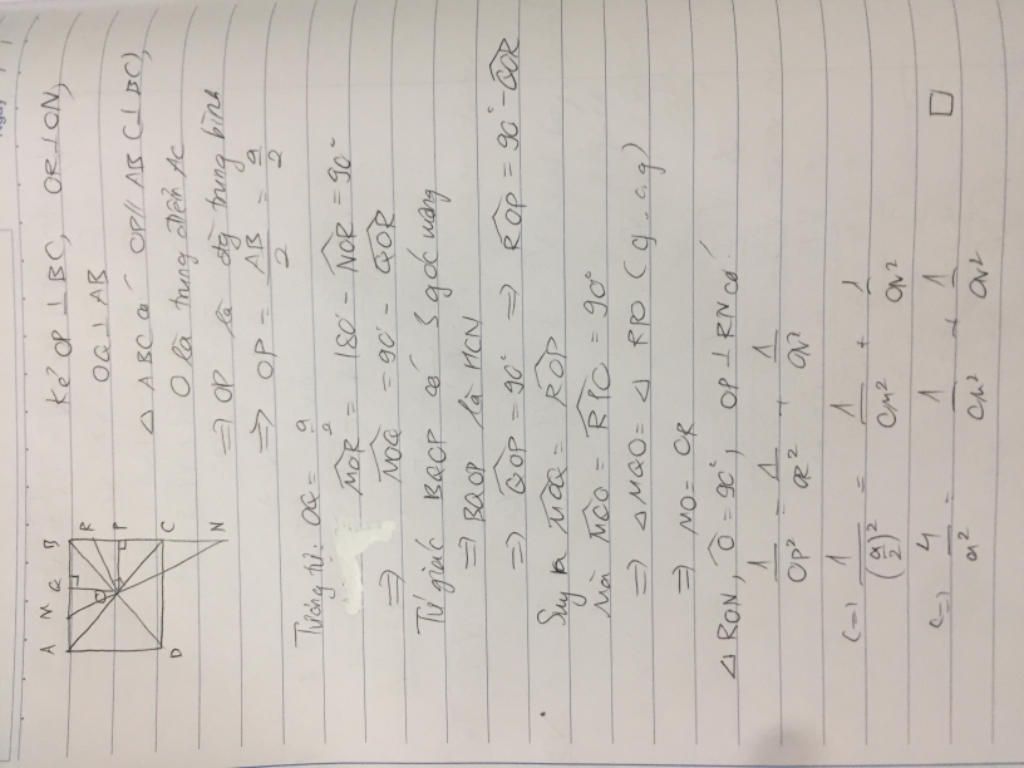 A M Q B
R
P
C
N
D
O
Kẻ OP ⊥ BC, OR ⊥ ON,
OQ ⊥ AB
△ ABC có OP // AB (⊥ BC),
O là trung điểm AC
=> OP là đg trung bình
=> OP = AB/2 = a/2
Tương tự: OQ = a/2
MOR = 180° - NOR = 90°
=> MOQ = 90° - QOR
Tứ giác BQOP có 3 góc vuông
=> BQOP là HCN
=> QOP = 90° => ROP = 90° - QOR
Suy ra MOQ = ROP
Mà MQO = RPO = 90°
=> △ MQO = △ RPO (g.c.g)
=> MO = OR
△ RON, O = 90°, OP ⊥ RN có:
1/OP² = 1/OR² + 1/ON²
<=> 1/(a/2)² = 1/OM² + 1/ON²
<=> 4/a² = 1/OM² + 1/ON² □